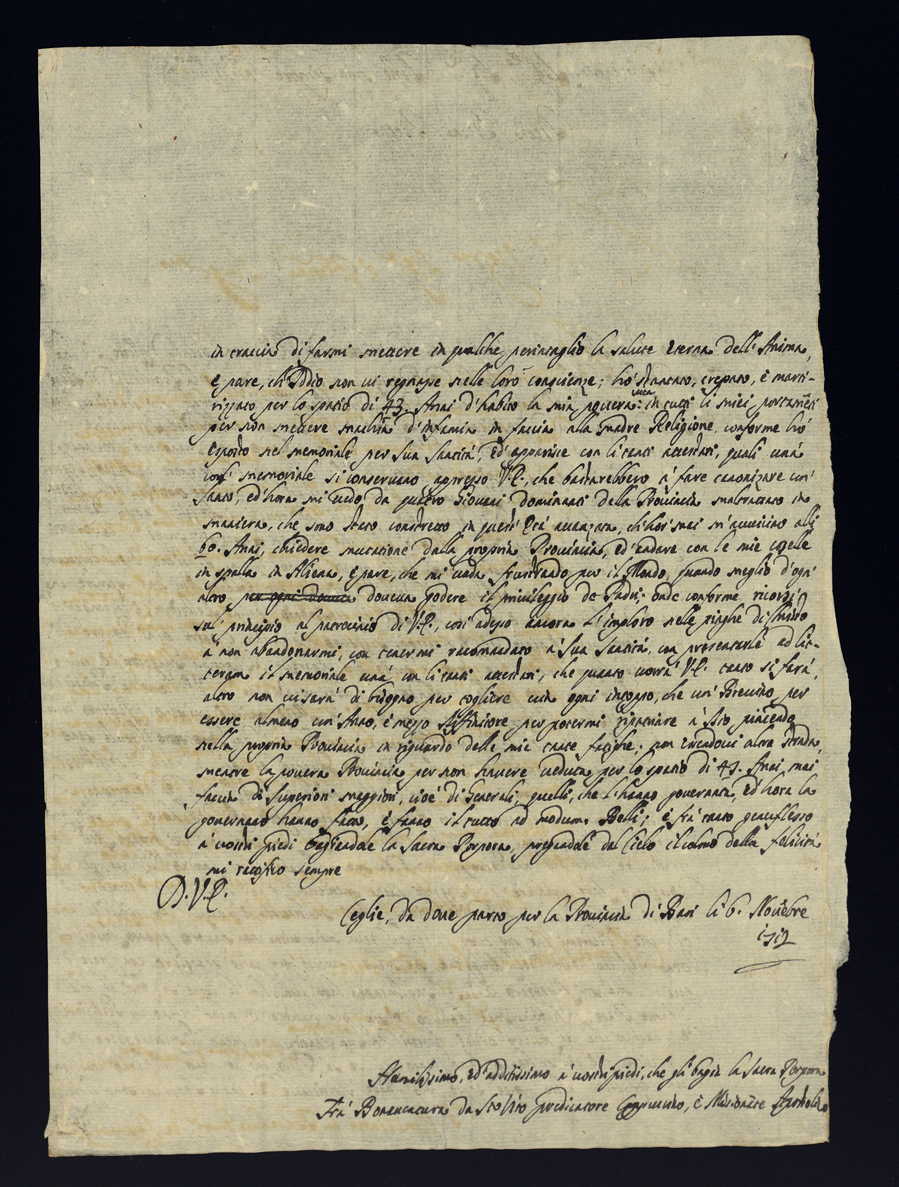 in traccia di farmi mettere in qualche periscaglio la salute Eterna dell'Anima,
e pare, ch'Iddio non vi regnasse nelle loro conscienze; hò stentato, crepato, è marti-
rizzato per lo spatio di 43. Anni d'habito la mia povera vita in tutti li miei portamēti
per non mettere macchia d'infamia in faccia alla Madre Religione, conforme hò
esposto nel memoriale per Sua Santità, ed'apparisce con li tanti attestati, quali unà
con memoriale si conservano appresso V.E., che bastarebbero à fare canonizare un'
Santo, ed'hora mi vedo da quattro Giovani Dominanti della Provincia maltrattato in
maniera, che sono stato constretto in quest'Età avanzata, ch'hor mai m'avvicino alli
60. Anni, chiedere mutatione dalla propria Provincia, ed'andare con le mie
in spalla in Aliena, e pare, che mi vada frustando per il Mondo, quando meglio d'ogn'
altro doveva godere il privileggio de Padri; onde conforme ricorsi
su'l principio al patrocinio di V.E., così adesso ancora l'imploro nelle piaghe di Christo
à non abandonarmi, con tenermi racomandato à Sua Santità, con presentarle ad lit-
teram il memoriale unà con li tanti attestati, che quanto vorrà V.E. tanto si farà,
altro non vi sarà di bisogno per togliere via ogni intoppo, che un'Brevino, per
essere almeno un'Anno, è mezzo Diffinitore per potermi ripatriare à suo piacendo
nella propria Provincia in riguardo delle mie tante fatighe; non essendovi altra strada,
mentre la povera Provincia per non havere veduta per lo spatio di 43. Anni mai
faccia di Superiori maggiori, cioè di Generali, quelli, che l'hanno governata, ed'hora la
governano hanno fatto, è fanno il tutto ad modum Belli; è frà tanto genuflesso
à vostri piedi baggiandole la Sacra Porpora, pregandole dal Cielo il colmo della felicità
mi ratifico sempre
D. V.E.
Ceglie, da dove parto per la Provincia di Bari li 6. Novēbre
1712
Humilissimo, ed'addittissimo à vostri piedi, che gli bagia la Sacra Porpora
Frà Bonaventura da Sto Vito Predicatore Cappuccino, è Missionāte Apostolico